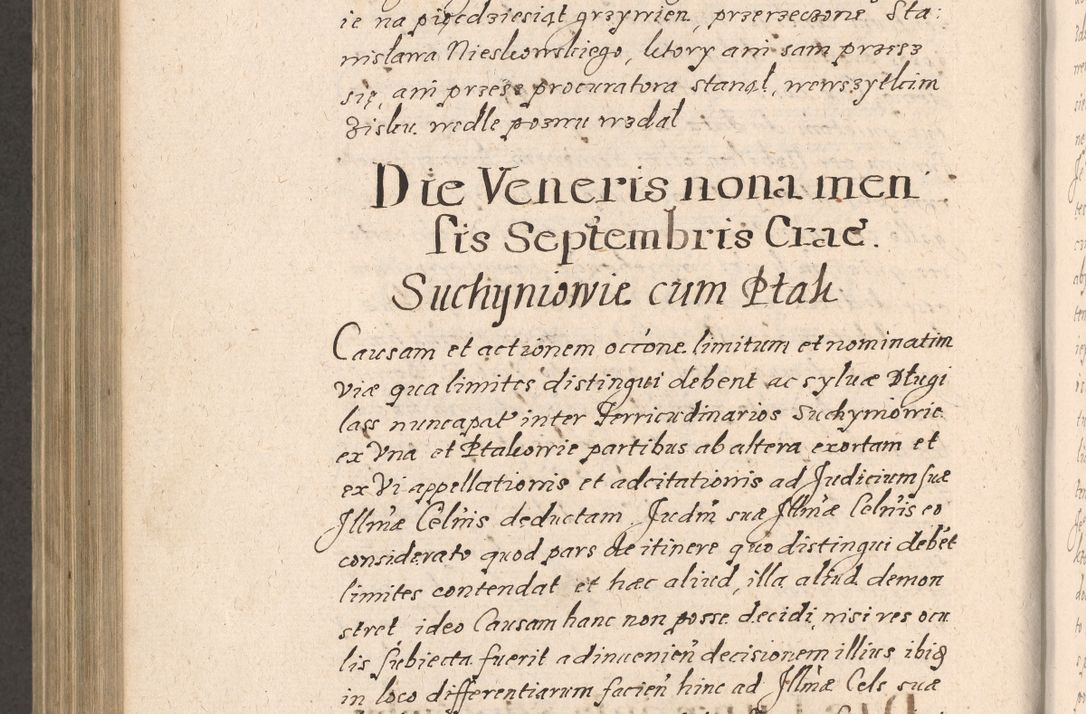 ie na pięcdziesiąt grzywien, przerzeczone Sta:
nisława Nieskowskiego, ktory ani sam przesz
się, ani przesz procuratora stanął, wewszytkim
zisku wedle pozwu wzdał
Die Veneris nona men
sis Septembris Crae.
Suchyniowie cum Ptak
Causam et actionem occone limitum et nominatim
viæ qua limites distingui debent ac sylvæ Długi
lass nuncapat inter Terricudinarios Suchyniowie
ex Vna et Ptakowie partibus ab altera exortam et
ex Vi appellationis et adcitationis ad Judicium suæ
Illmæ Celnis deductam Judm suæ Illmæ Celnis eo
considerato quod pars de itinere quo distingui debet
limites contendat et hæc aliud, illa aliud demon
stret ideo Causam hanc non posse decidi nisi res ocu
lis subiecta fuerit adinvenien decisionem illius ibiq
in loco differentiarum facien hinc ad Illmæ Cels suæ